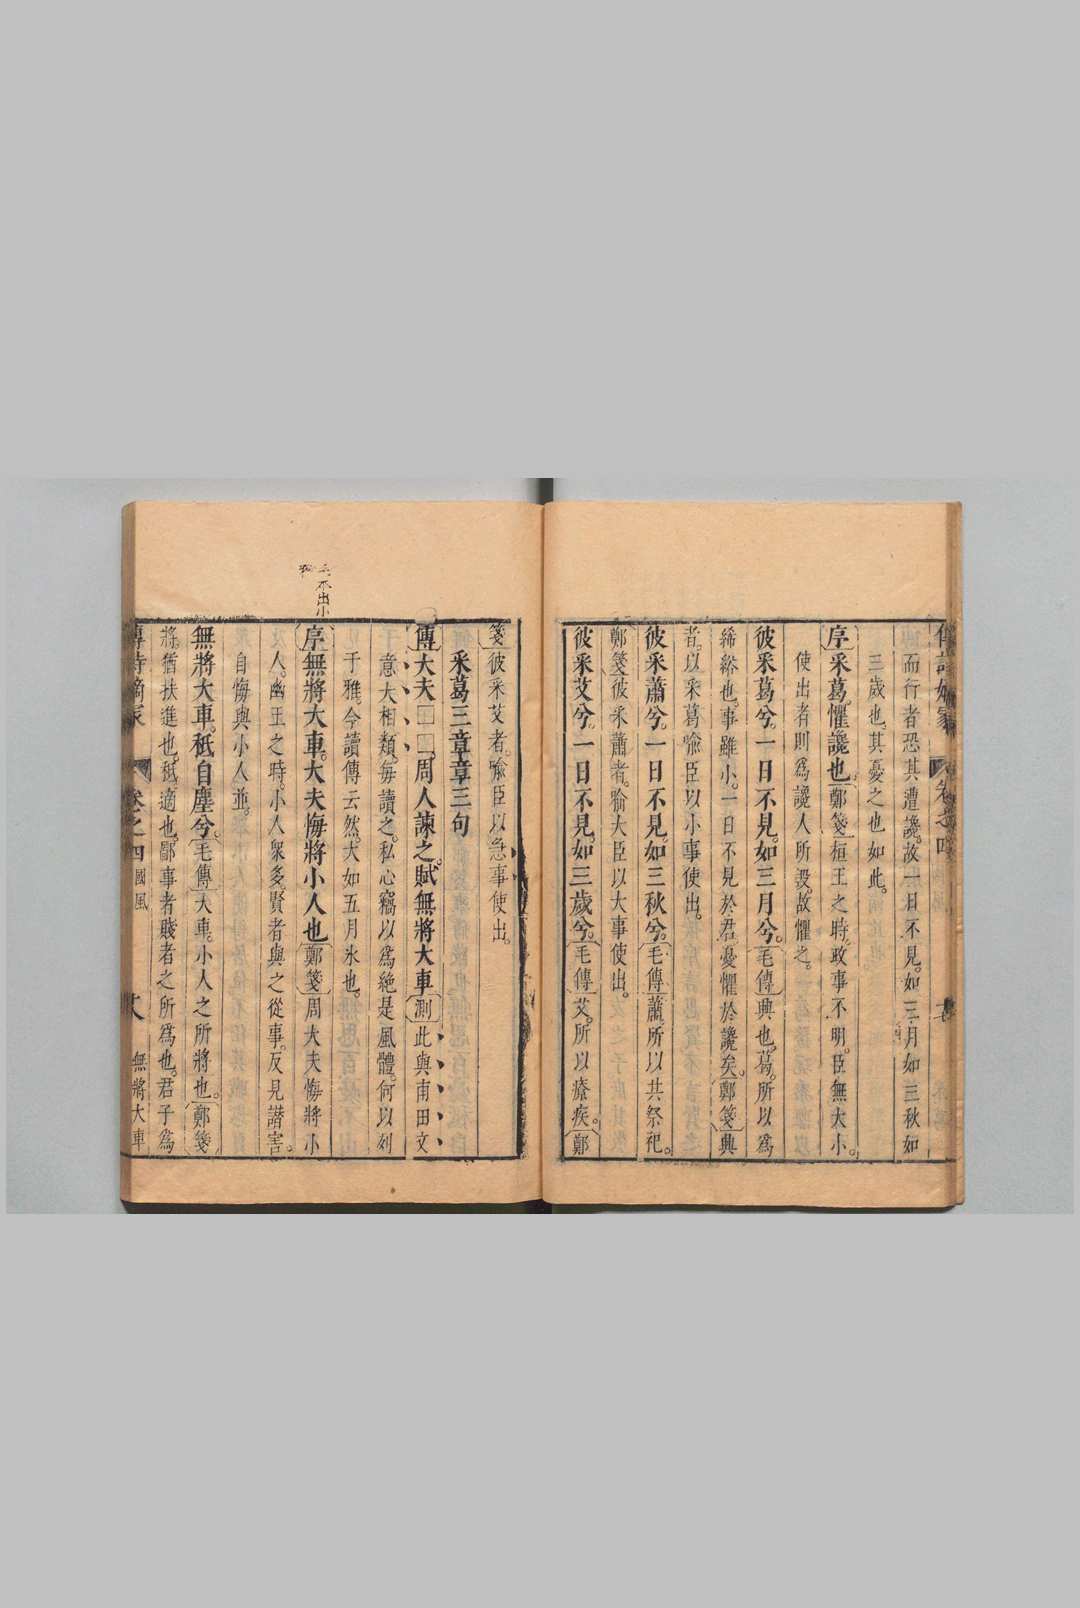 而行者恐其遭讒。故一日不見。如三月如三秋如
三歲也。其憂之也如此。
序采葛。懼讒也。鄭箋桓王之時。政事不明。臣無大小。
使出者則爲讒人所毀。故懼之。
彼采葛兮。一日不見。如三月兮。毛傳興也。葛。所以爲
絺綌也。事雖小。一日不見於君。憂懼於讒矣。鄭箋興
者。以采葛喩臣以小事使出。
彼采蕭兮。一日不見。如三秋兮。毛傳蕭。所以共祭祀。
鄭箋彼采蕭者。喩大臣以大事使出。
彼采艾兮。一日不見。如三歲兮。毛傳艾。所以療疾。鄭
箋彼采艾者。喩臣以急事使出。
采葛三章章三句
傳大夫□□周人諫之。賦無將大車測此與甫田文
意大相類。每讀之。私心竊以爲絶是風體。何以列
于雅。今讀傳云然。大如五月氷也。
序無將大車。大夫悔將小人也鄭箋周大夫悔將小
人。幽王之時。小人衆多。賢者與之從事。反見譖害。
自悔與小人並。
無將大車。祗自塵兮。毛傳大車。小人之所將也。鄭箋
將。猶扶進也。祗。適也。鄙事者賤者之所爲也。君子爲
卷之四國風
無將大車